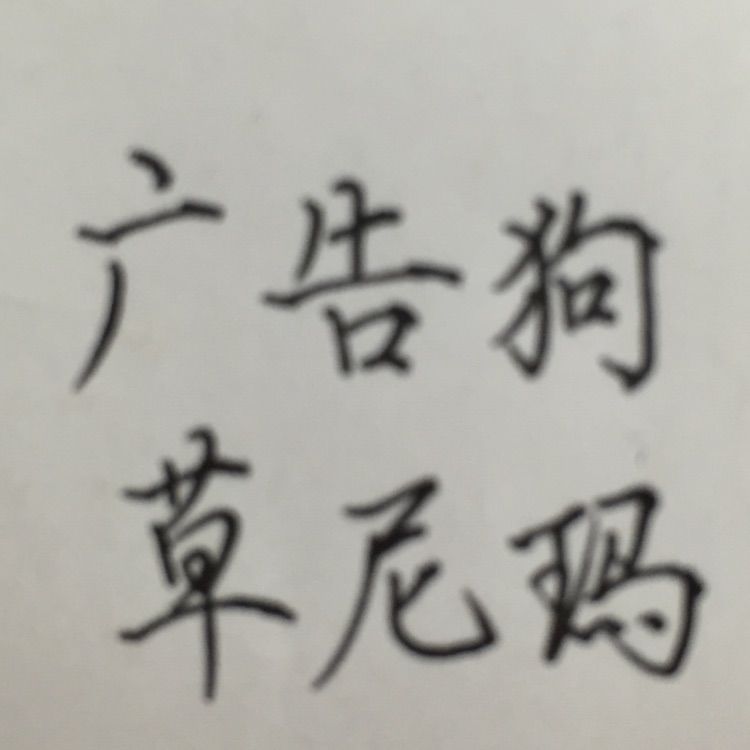 广告狗
草尼玛